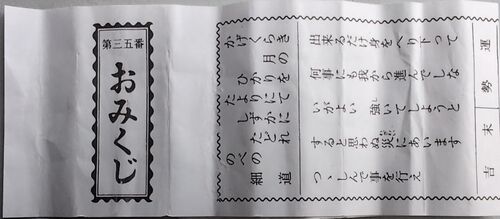 第三五番
おみくじ
かげくらき
月の
ひかりを
たよりにて
しずかに
たどれ
のべの
細道
運勢 末吉
出来るだけ身をへり下って
何事にも我から進んでしな
いがよい 強いてしようと
すると思わぬ災にあいます
つゝしんで事を行え